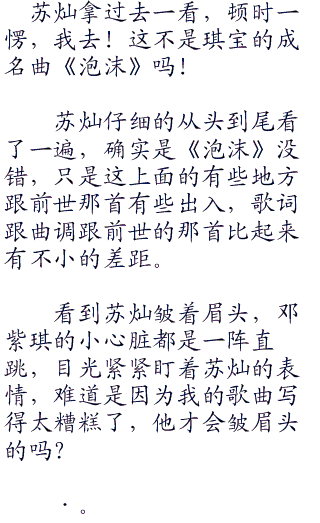 苏灿拿过去一看，顿时一
愣，我去！这不是琪宝的成
名曲《泡沫》吗！
苏灿仔细的从头到尾看
了一遍，确实是《泡沫》没
错，只是这上面的有些地方
跟前世那首有些出入，歌词
跟曲调跟前世的那首比起来
有不小的差距。
看到苏灿皱着眉头，邓
紫琪的小心脏都是一阵直
跳，目光紧紧盯着苏灿的表
情，难道是因为我的歌曲写
得太糟糕了，他才会皱眉头
的吗？
·。